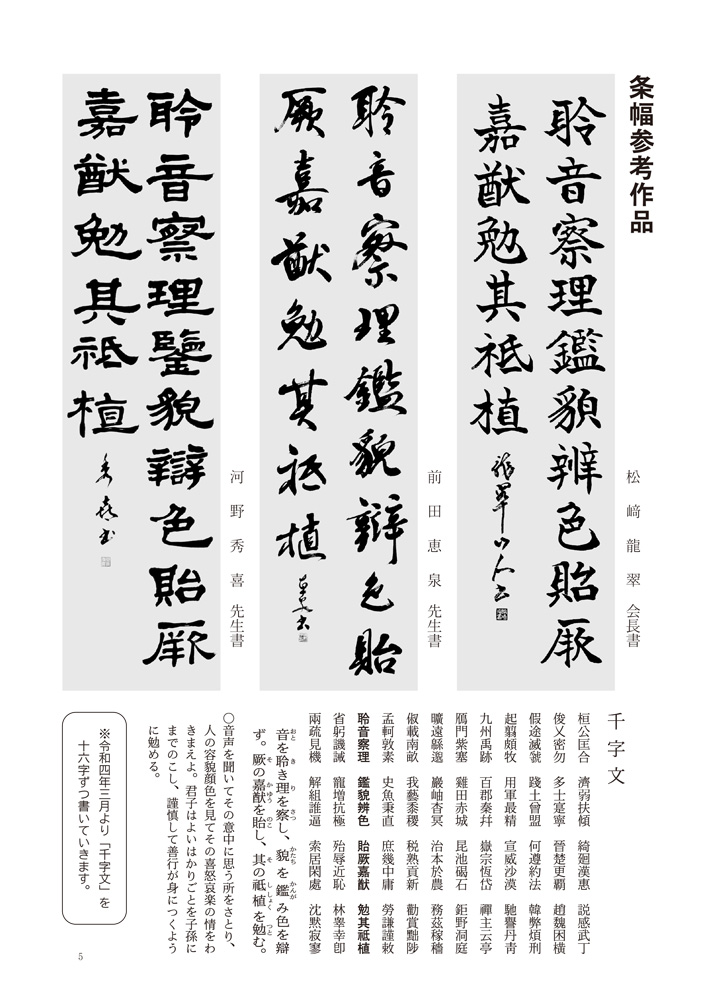 条幅参考作品
松﨑龍翠 会長書
聆音察理鑑貌辨色貽厥
嘉猷勉其祗植
前田恵泉 先生書
聆音察理鑑貌辯色貽
厥嘉猷勉其祗植
河野秀喜 先生書
聆音察理鑒貌辯色貽厥
嘉猷勉其祗植
秀喜書
千字文
桓公匡合 濟弱扶傾 綺廻漢惠 説感武丁
俊乂密勿 多士寔寧 晉楚更覇 趙魏困橫
假途滅虢 踐土會盟 何遵約法 韓弊煩刑
起翦頗牧 用軍最精 宣威沙漠 馳譽丹靑
九州禹跡 百郡秦幷 嶽宗恆岱 禪主云亭
鴈門紫塞 雞田赤城 昆池碣石 鉅野洞庭
曠遠緜邈 巖岫杳冥 治本於農 務茲稼穡
俶載南畝 我藝黍稷 税熟貢新 勸賞黜陟
孟軻敦素 史魚秉直 庶幾中庸 勞謙謹敕
聆音察理 鑑貌辨色 貽厥嘉猷 勉其祗植
省躬譏誡 寵增抗極 殆辱近恥 林皋幸卽
兩疏見機 解組誰逼 索居閑處 沈黙寂寥
音を聆き理を察し、貌を鑑み色を辯
おと き り さつ かたち かんが
ず。厥の嘉猷を貽し、其の祗植を勉む。
そ かゆう のこ そ ししょく つと
〇音声を聞いてその意中に思う所をさとり、
人の容貌顔色を見てその喜怒哀楽の情をわ
きまえよ。君子はよいはかりごとを子孫に
までのこし、謹慎して善行が身につくよう
に勉める。
※令和四年三月より「千字文」を
十六字ずつ書いていきます。
5